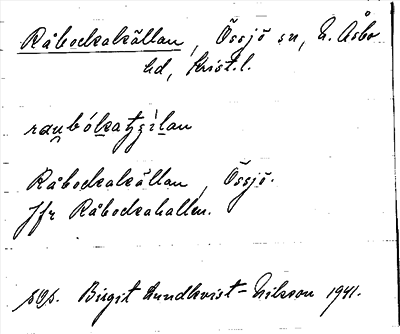 Råbockakällan, Össjö sn, N. Åsbo
hd, Krist.l.
raụbǫ́katʒìlan
Råbockakällan, Össjö.
Jfr Råbockahallen.
Birgit Lundkvist-Nilsson 1941.